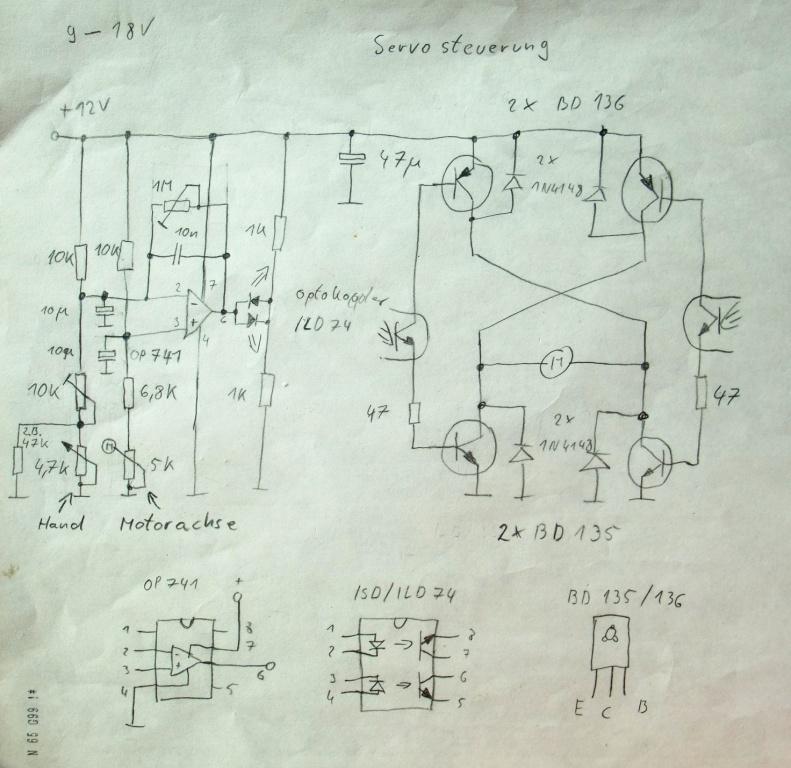 9 - 18V
Servosteuerung
+12V
2x BD 136
47µ
2x
1N4148
1M
10n
10K
10K
1K
2
7
3
6
4
10µ
10µ
OP741
Optokoppler
ILD74
10K
6,8K
1K
47
47
z.B.
47K
4,7K
M
5K
M
2x
1N4148
Hand
Motorachse
2x BD 135
OP741
+
1
2
3
4
8
7
6
5
ISD/ILD74
1
2
3
4
8
7
6
5
BD 135/136
E C B
N 65 099 1#